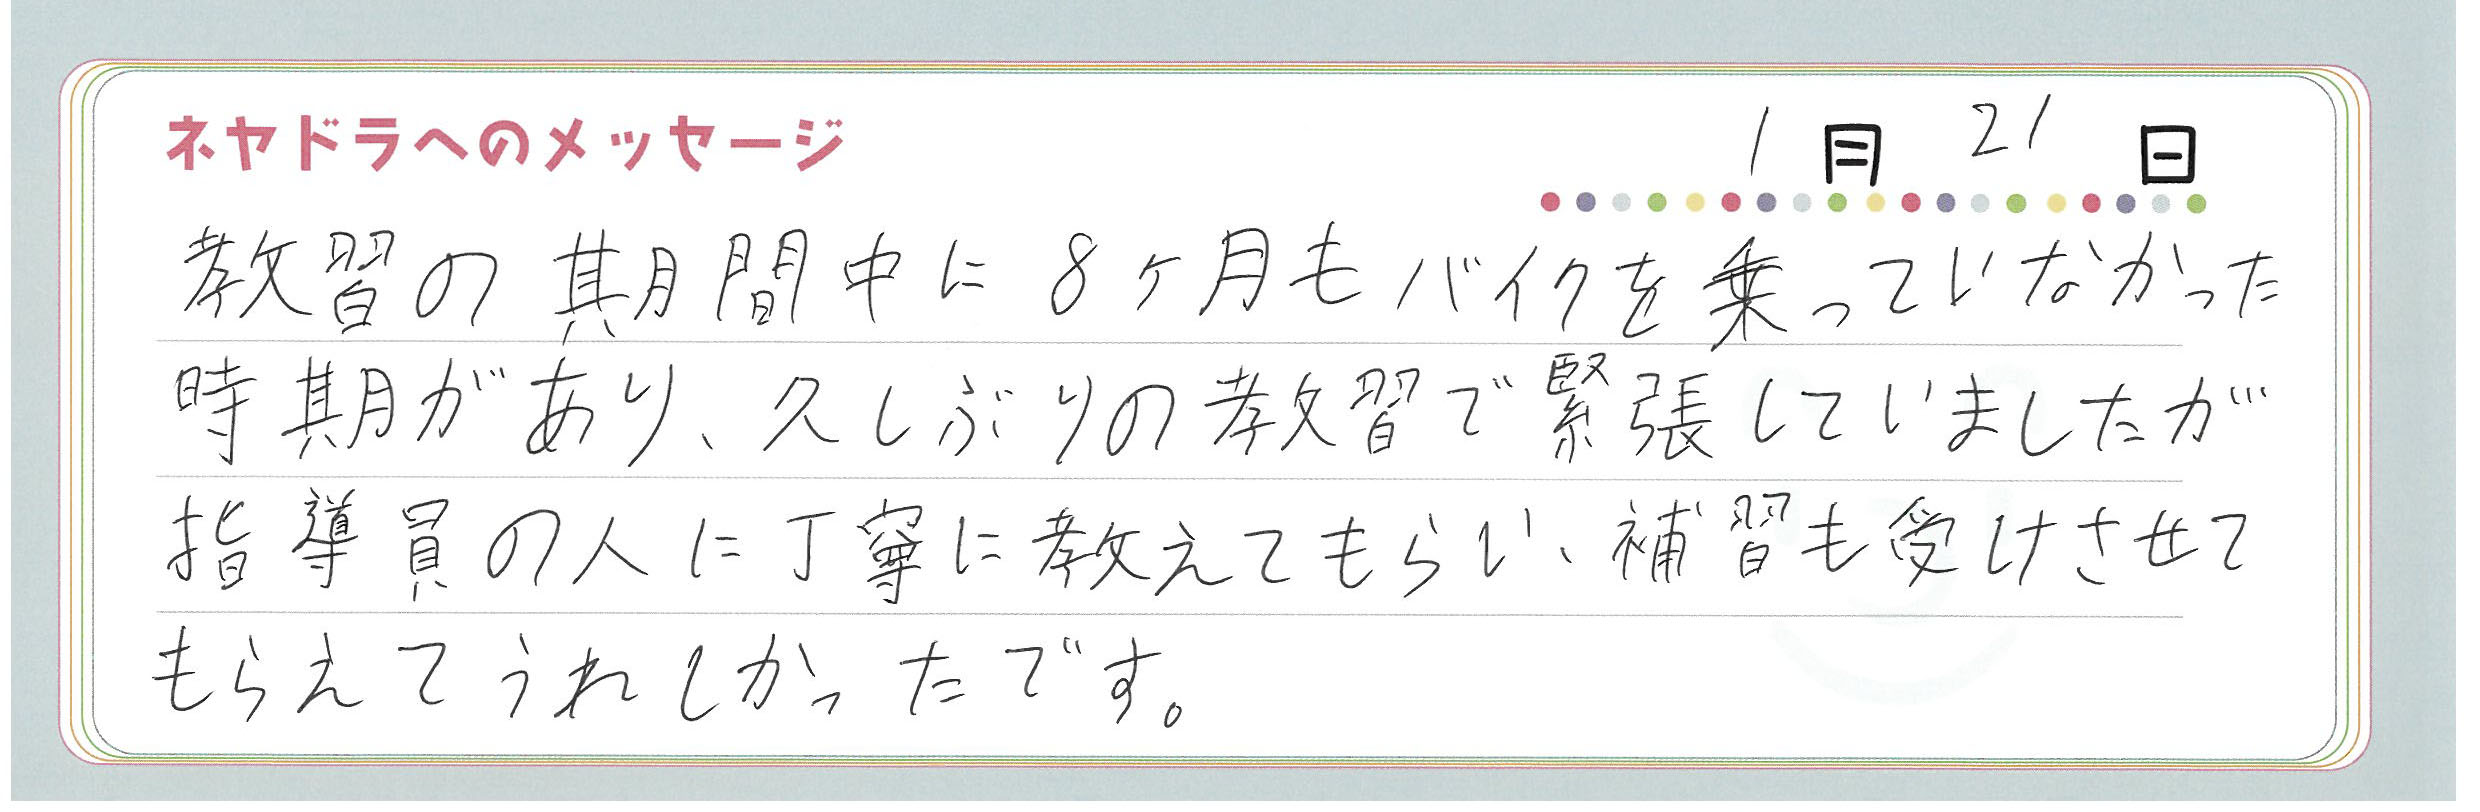 ネヤドラへのメッセージ
1月21日
教習の期間中に8ヶ月もバイクを乗っていなかった
時期があり、久しぶりの教習で緊張していましたが
指導員の人に丁寧に教えてもらい、補習も受けさせて
もらえてうれしかったです。